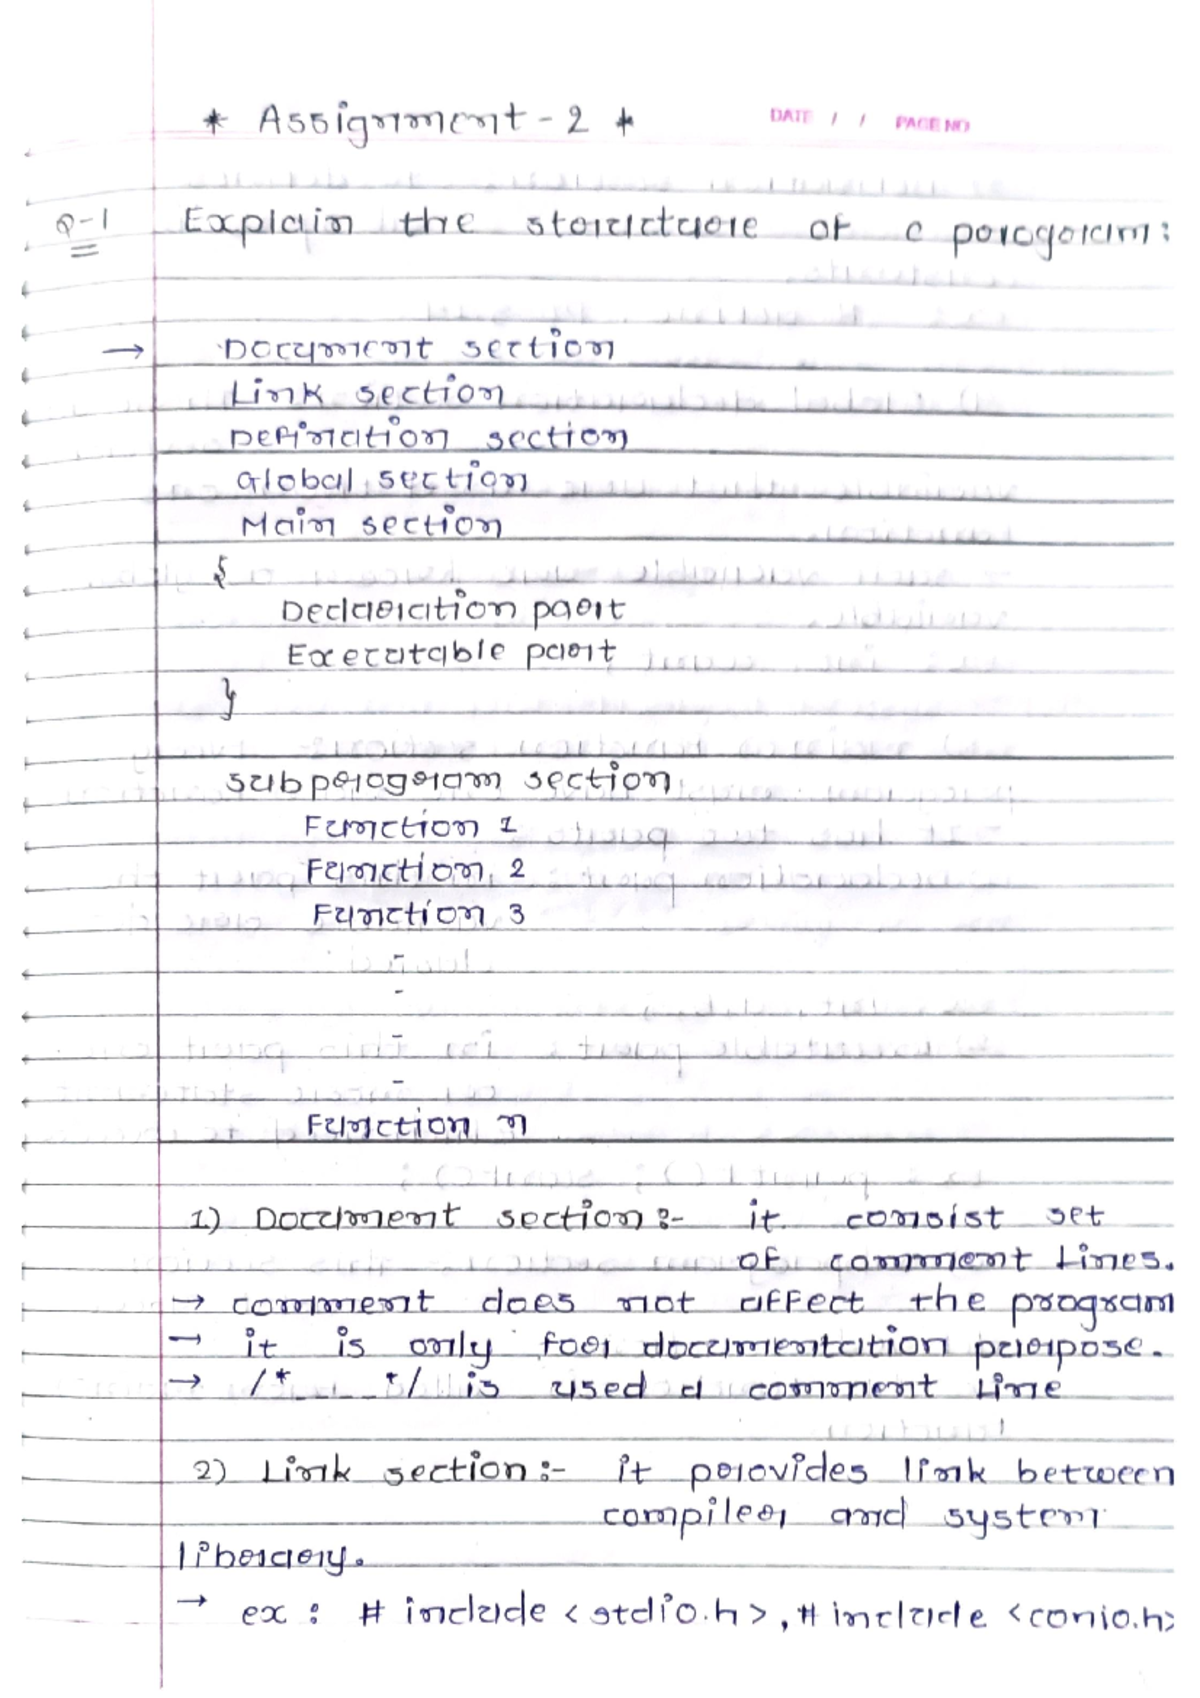 * Assignment - 2 *
DATE / / PAGE NO
Q-1 Explain the structure of c program:
→ Document section
Link section
Defination section
Global section
Main section
{
Declaration part
Executable part
}
Subprogram section
Function 1
Function 2
Function 3
-
-
-
-
Function n
1) Document section :- it consist set
of comment lines.
→ comment does not affect the program
→ it is only for documentation purpose.
→ /* _ _ _ */ is used a comment line
2) Link section :- it provides link between
compiler and system
library.
→ ex : # include <stdio.h>, # include <conio.h>